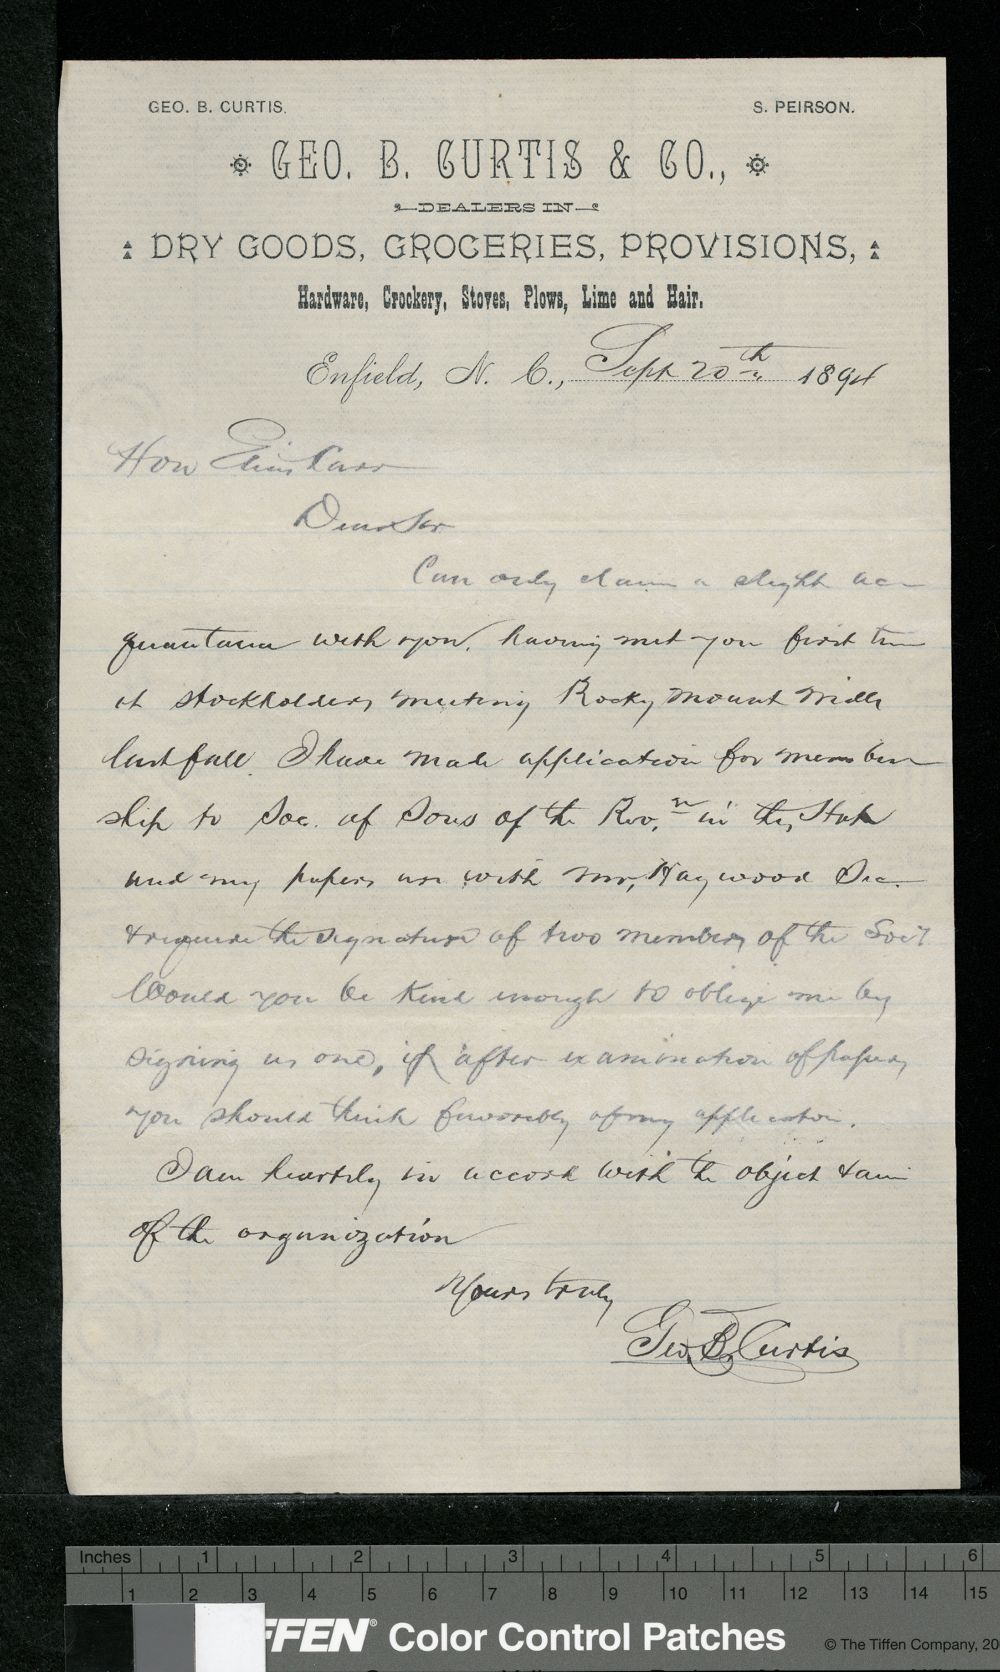 GEO. B. CURTIS. S. PEIRSON.
GEO. B. CURTIS & CO.,
DEALERS IN
DRY GOODS, GROCERIES, PROVISIONS,
Hardware, Crockery, Stoves, Plows, Lime and Hair.
Enfield, N. C., Sept 20th 1894
Hon Elias Carr
Dear Sir
Can only claim a slight ac
quantance with you, having met you first time
at stockholders meeting Rocky Mount Mills
last fall. I have made application for member
ship to Soc. of Sons of the Rev.n in this State
and my papers are with Mr, Haywood Sec.
& require the signature of two members of the Soc'y
Would you be kind enough to oblige me by
signing as one, if after examination of papers
you should think favorably of my application.
I am heartily in accord with the object & aim
of the organization
Yours truly
Geo. B. Curtis
Inches 1 2 3 4 5 6
1 2 3 4 5 6 7 8 9 10 11 12 13 14 15
FFEN® Color Control Patches © The Tiffen Company, 20